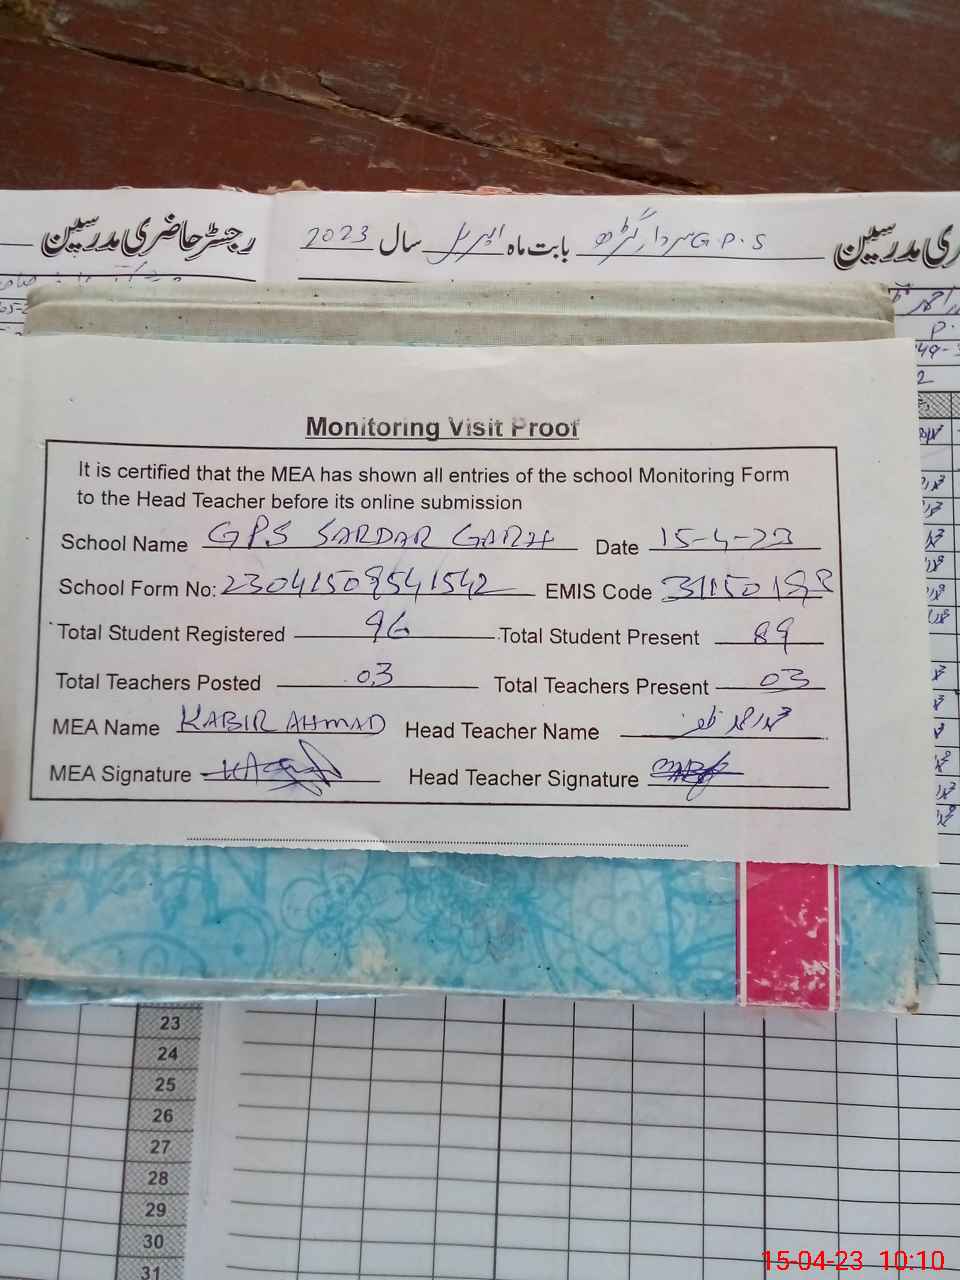 رجسٹر حاضری مدرسین
G.P.S سردار گڑھ بابت ماہ اپریل سال 2023
ری مدرسین
Monitoring Visit Proof
It is certified that the MEA has shown all entries of the school Monitoring Form
to the Head Teacher before its online submission
School Name GPS SARDAR GARH Date 15-4-23
School Form No: 23041509541542 EMIS Code 31150198
Total Student Registered 96 Total Student Present 89
Total Teachers Posted 03 Total Teachers Present 03
MEA Name KABIR AHMAD Head Teacher Name
MEA Signature Head Teacher Signature
23
24
25
26
27
28
29
30
31
15-04-23 10:10